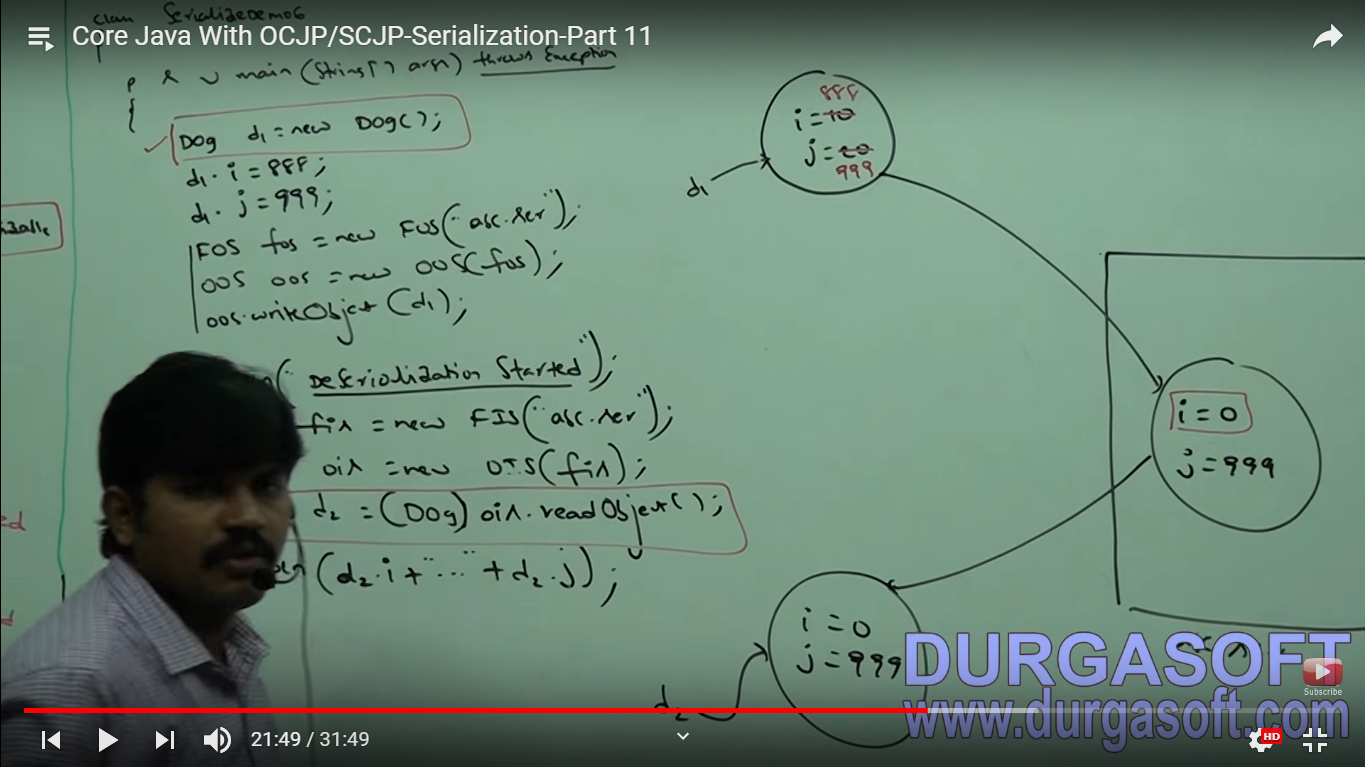 Core Java With OCJP/SCJP-Serialization-Part 11
class SerializeDemo6
{
p s v main (String[] args) throws Exception
{
Dog d1 = new Dog();
d1.i = 888;
d1.j = 999;
FOS fos = new FOS("abc.ser");
OOS oos = new OOS(fos);
oos.writeObject(d1);
("Deserialization Started");
fis = new FIS("abc.ser");
ois = new OIS(fis);
d2 = (Dog) ois.readObject();
(d2.i + "..." + d2.j);
d1
888
i = 10
j = 20
999
i = 0
j = 999
i = 0
j = 999
d2
DURGASOFT
www.durgasoft.com
Subscribe
21:49 / 31:49
HD